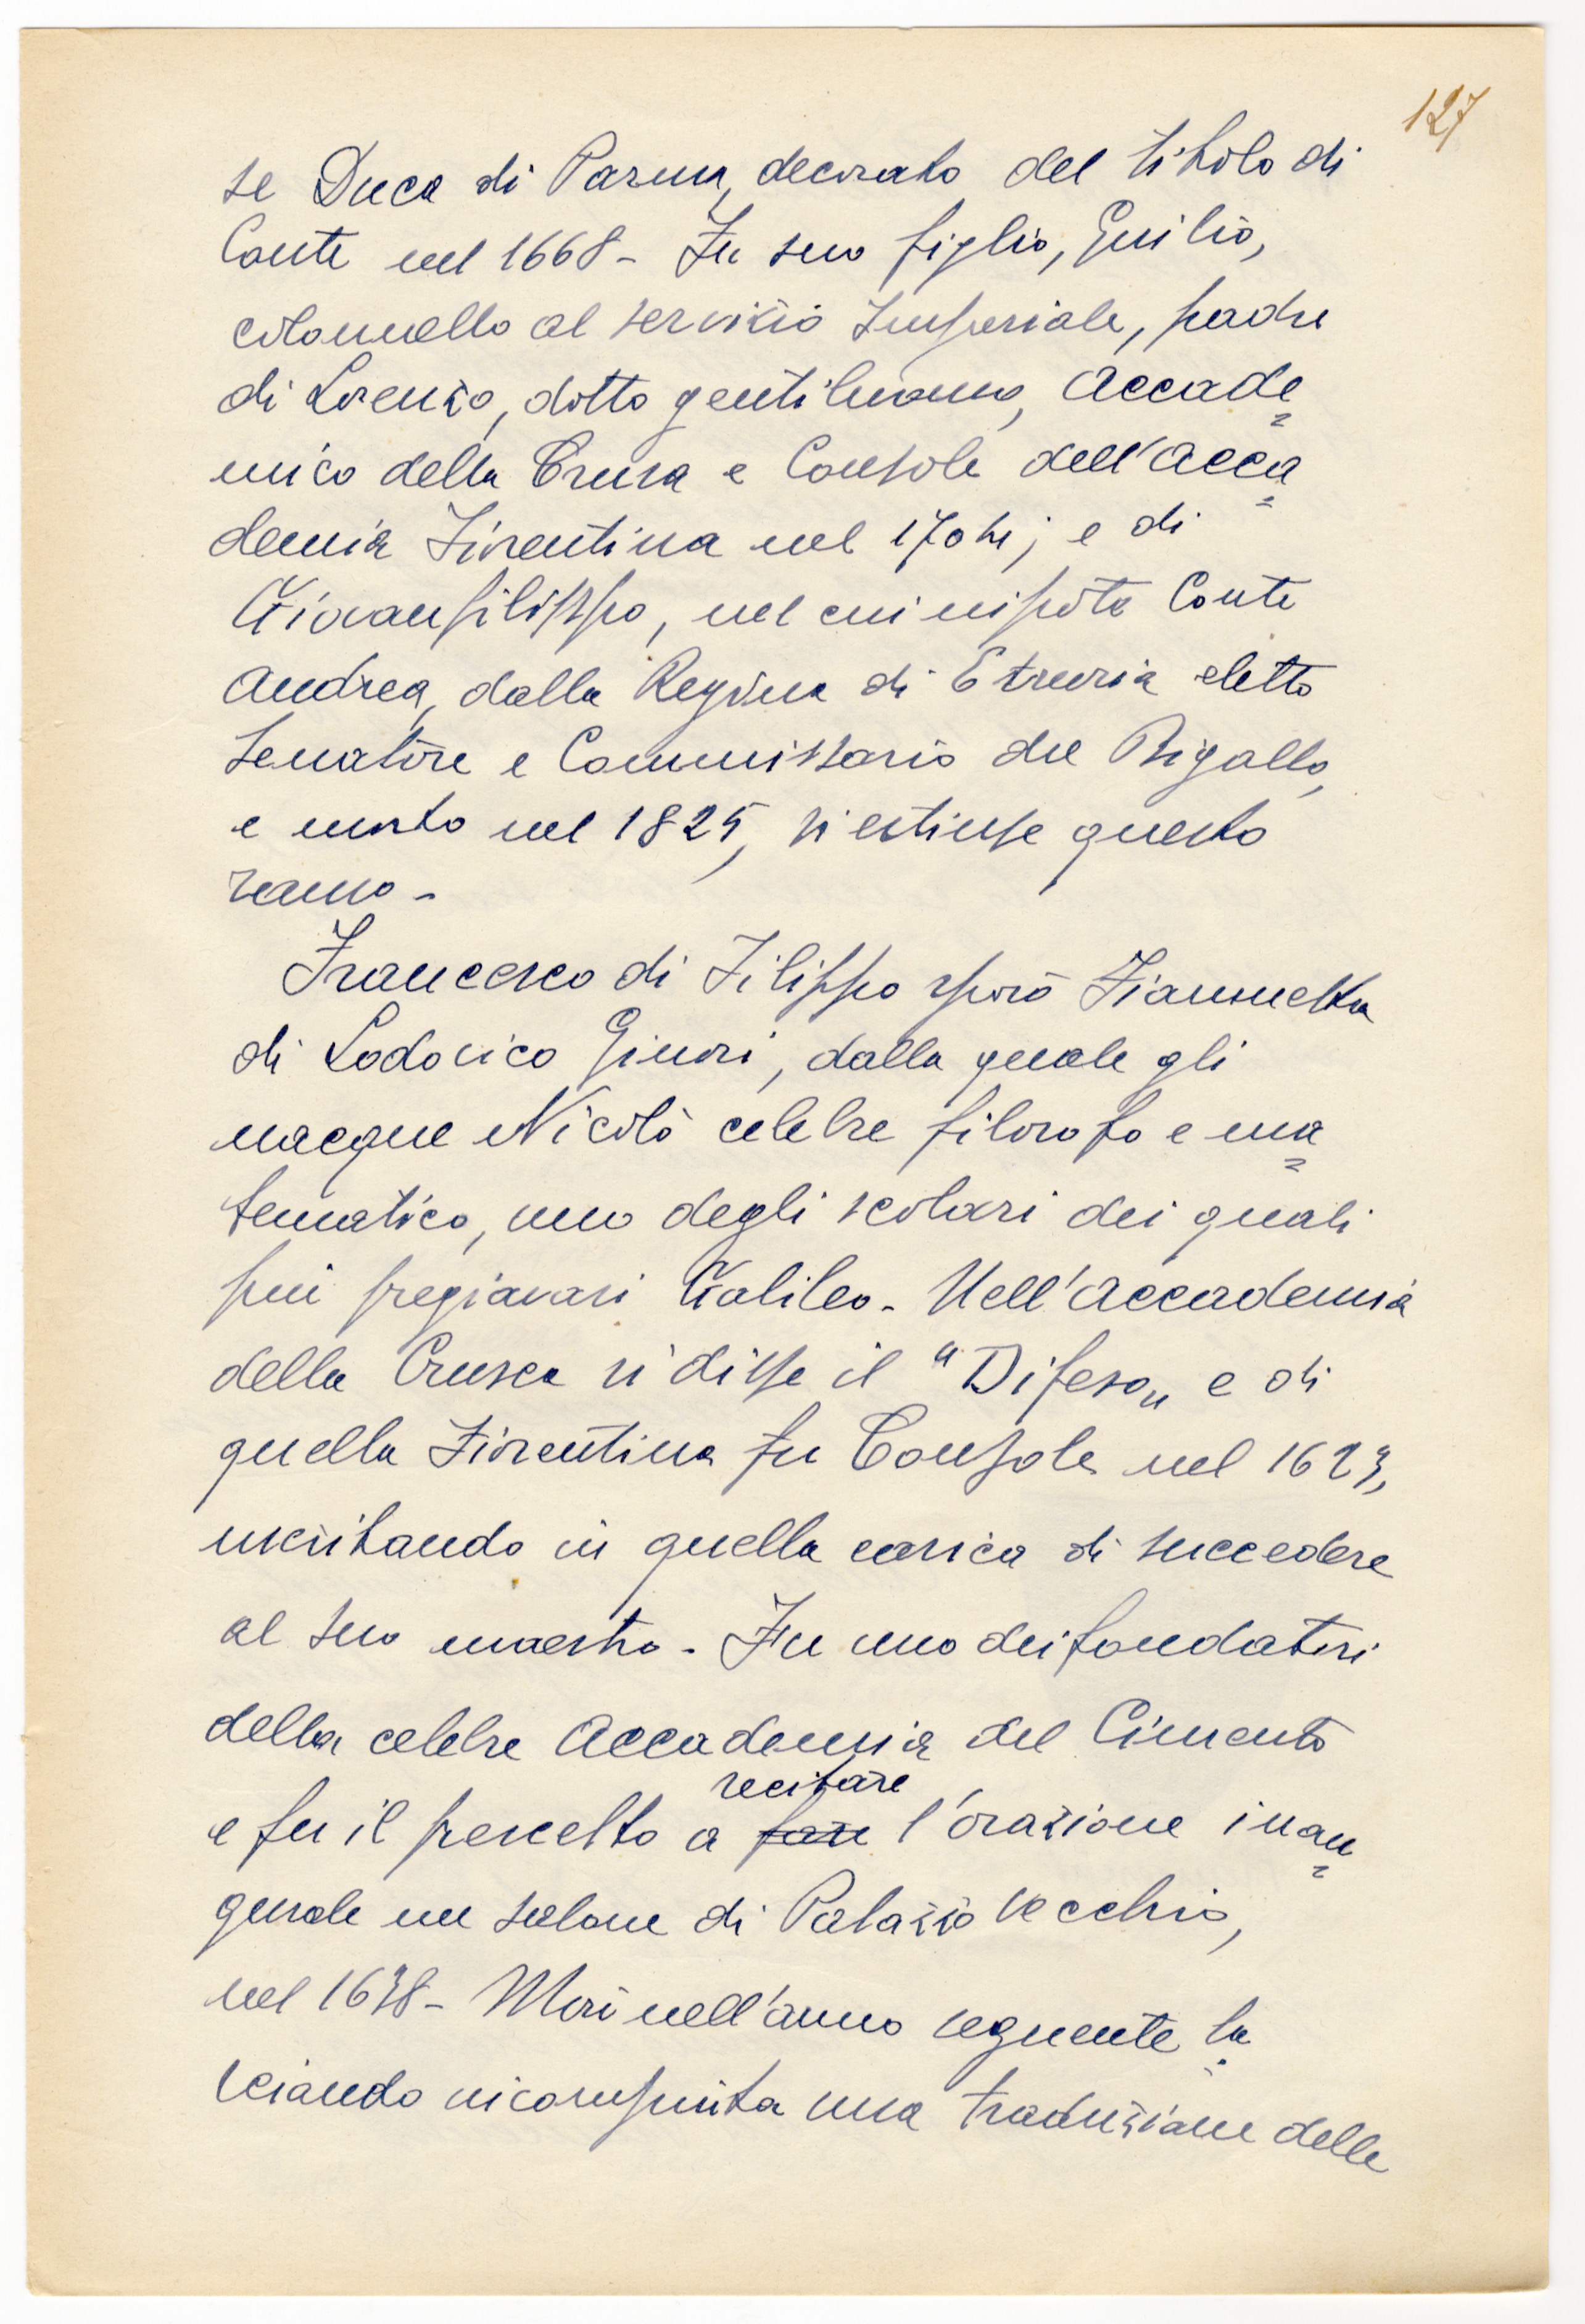 127
se Duca di Parma, decorato del titolo di
Conte nel 1668 - Fu suo figlio, Giulio,
colonnello al servizio Imperiale, padre
di Lorenzo, dotto gentiluomo, Accade=
mico della Crusca e Console dell'Acca=
demia Fiorentina nel ; e di
Giovanfilippo, nel cui nipote Conte
Andrea, dalla Regina di Etruria eletto
Senatore e Commissario del Bigallo,
e morto nel 1825, si estinse questo
ramo -
Francesco di Filippo sposò Fiammetta
di Lodovico Ginori, dalla quale gli
nacque Nicolò celebre filosofo e ma=
tematico, uno degli scolari dei quali
più pregiavasi Galileo - Nell'Accademia
della Crusca si disse il "Difeso" e di
quella Fiorentina fu Console nel 1623,
meritando in quella carica di succedere
al suo maestro - Fu uno dei fondatori
della celebre Accademia del Cimento
recitare
e fu il prescelto a fare l'orazione inau=
gurale nel salone di Palazzo Vecchio,
nel 1638 - Morì nell'anno seguente la
sciando incompiuta una traduzione delle